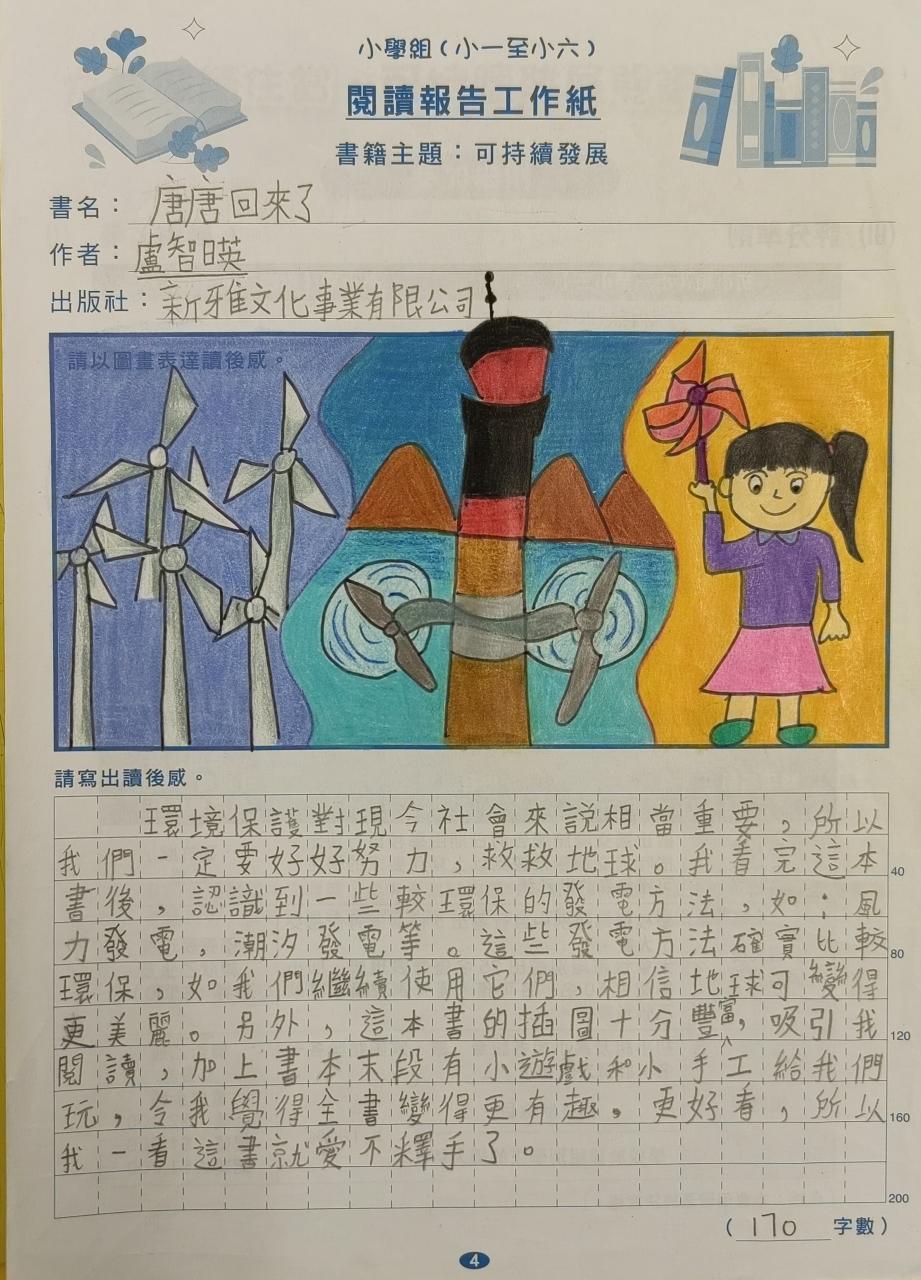 小學組（小一至小六）
閱讀報告工作紙
書籍主題：可持續發展
書名：唐唐回來了
作者：盧智日英
出版社：新雅文化事業有限公司
請以圖畫表達讀後感。
請寫出讀後感。
環境保護對現今社會來説相當重要，所以
我們一定要好好努力，救救地球。我看完這本
40
書後，認識到一些較環保的發電方法，如：風
力發電，潮汐發電等。這些發電方法確實比較
80
環保，如我們繼續使用它們，相信地球可變得
更美麗。另外，這本書的插圖十分豐富，吸引我
120
閱讀，加上書本末段有小遊戲和小手工給我們
玩，令我覺得全書變得更有趣，更好看，所以
160
我一看這書就愛不釋手了。
200
（170字數）
4